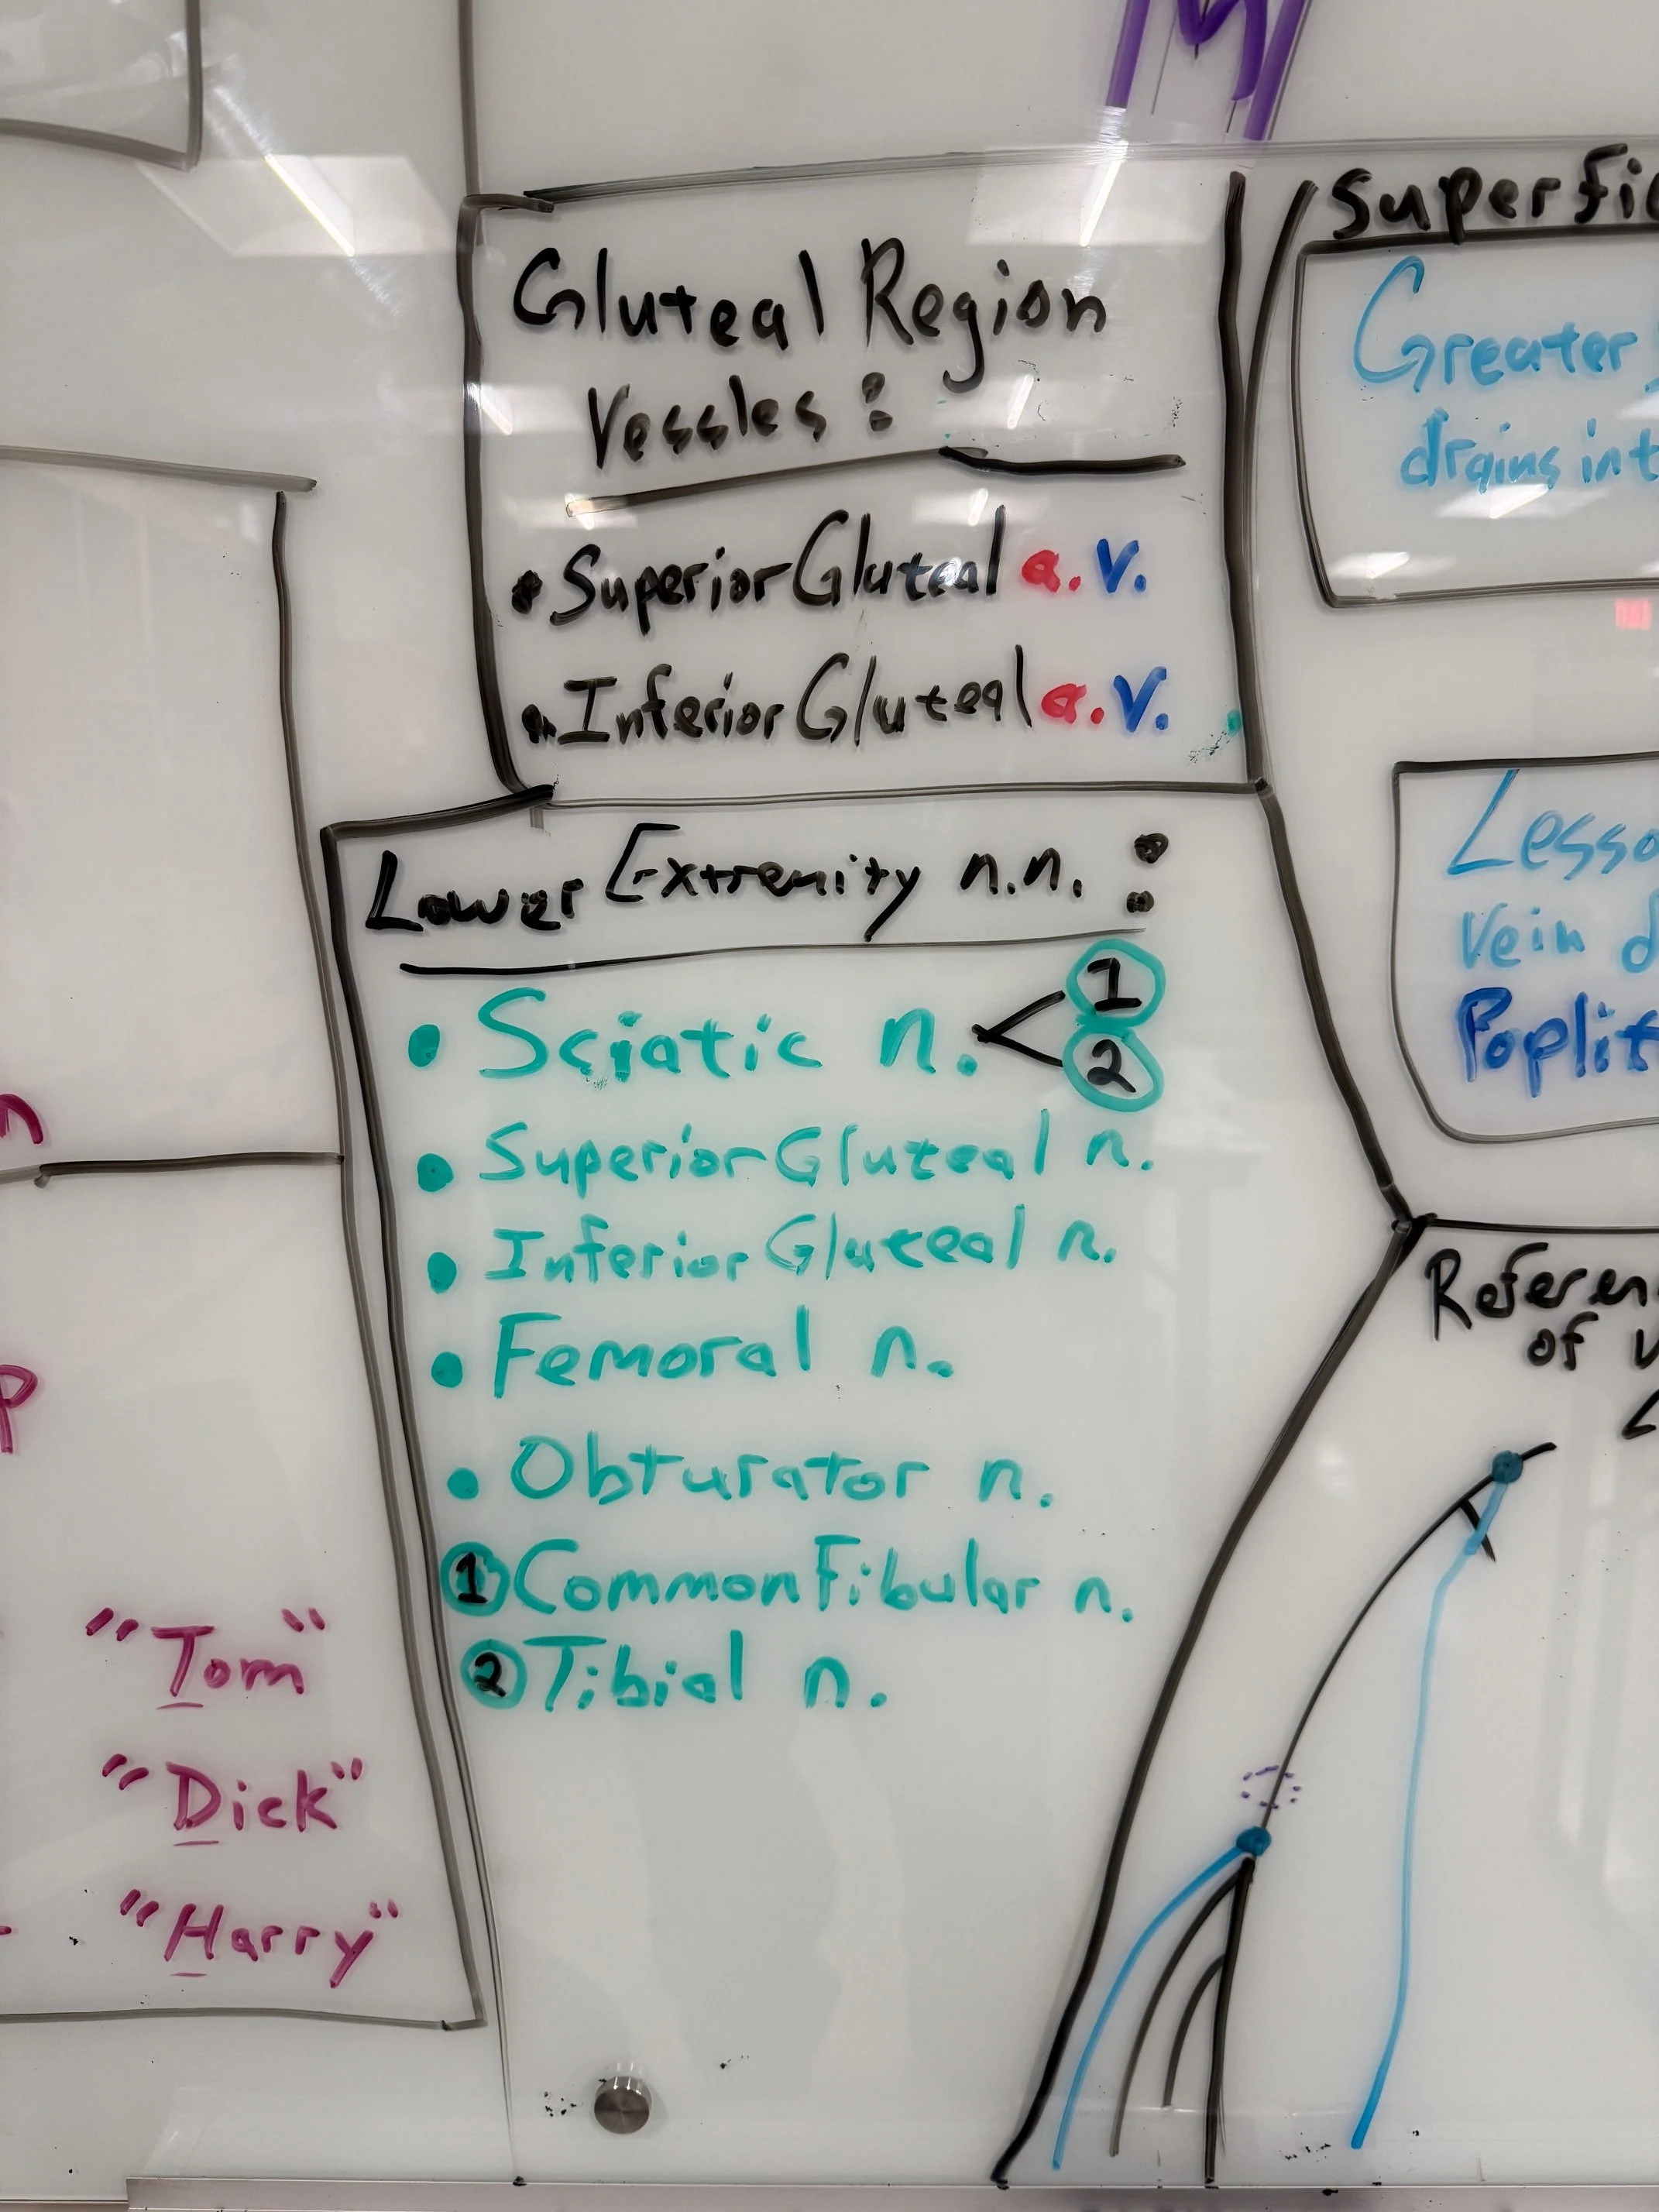 Gluteal Region
Vessles:
• Superior Gluteal a. v.
• Inferior Gluteal a. v.
Lower Extremity n.n. :
• Sciatic n. < 1
2
• Superior Gluteal n.
• Inferior Gluteal n.
• Femoral n.
• Obturator n.
1 Common Fibular n.
2 Tibial n.
n
P
"Tom"
"Dick"
"Harry"
Superfic
Greater
drains int
Lesse
Vein d
Poplit
Referen
of v